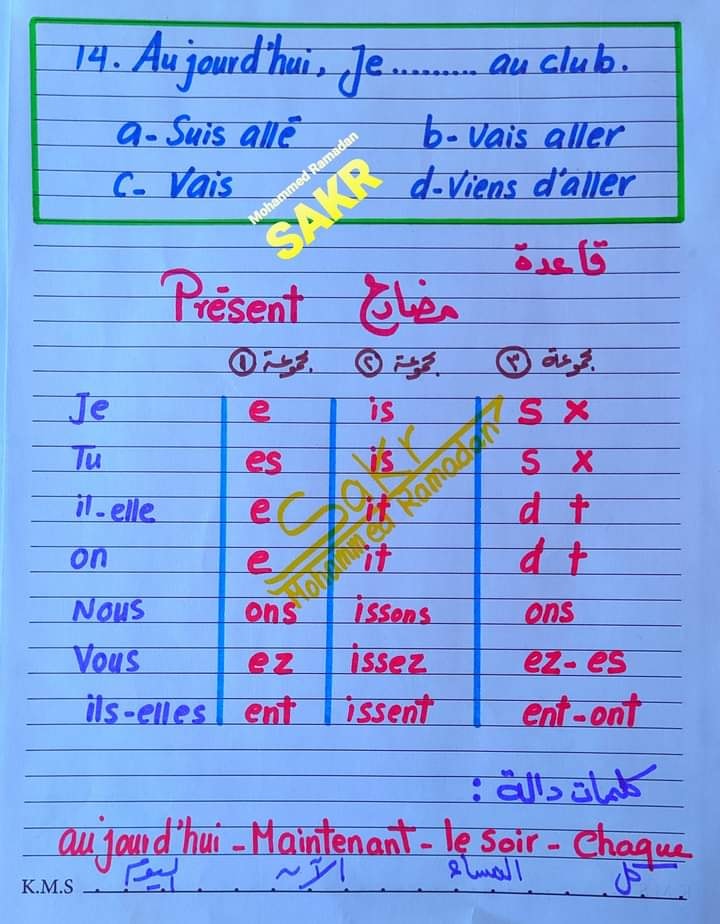 14. Aujourd'hui, Je ......... au club.
a- Suis allé b- Vais aller
c- Vais d- Viens d'aller
Mohammed Ramadan
SAKR
قاعدة
Présent مضارع
مجموعة ① مجموعة ② مجموعة ③
Je e is s x
Tu es is s x
il-elle e it d t
on e it d t
Nous ons issons ons
Vous ez issez ez-es
ils-elles ent issent ent-ont
Sakr
Mohammed Ramadan
كلمات دالة :
aujourd'hui - Maintenant - le soir - Chaque
اليوم الآن المساء كل
K.M.S